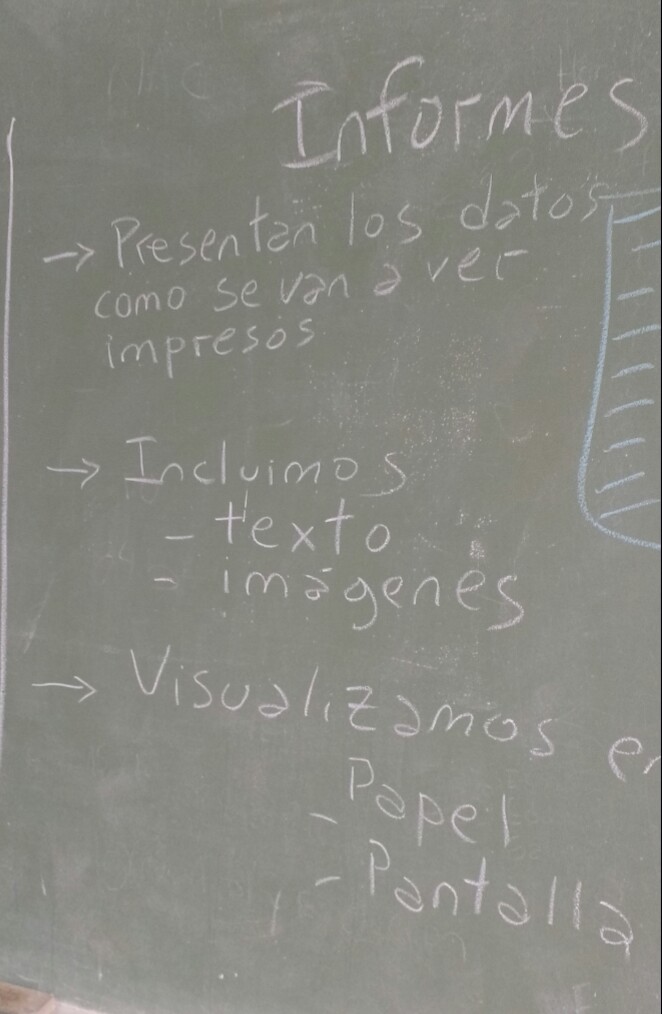 Informes
→ Presentan los datos
como se van a ver
impresos
→ Incluimos
- texto
- imágenes
→ Visualizamos en
- Papel
- Pantalla